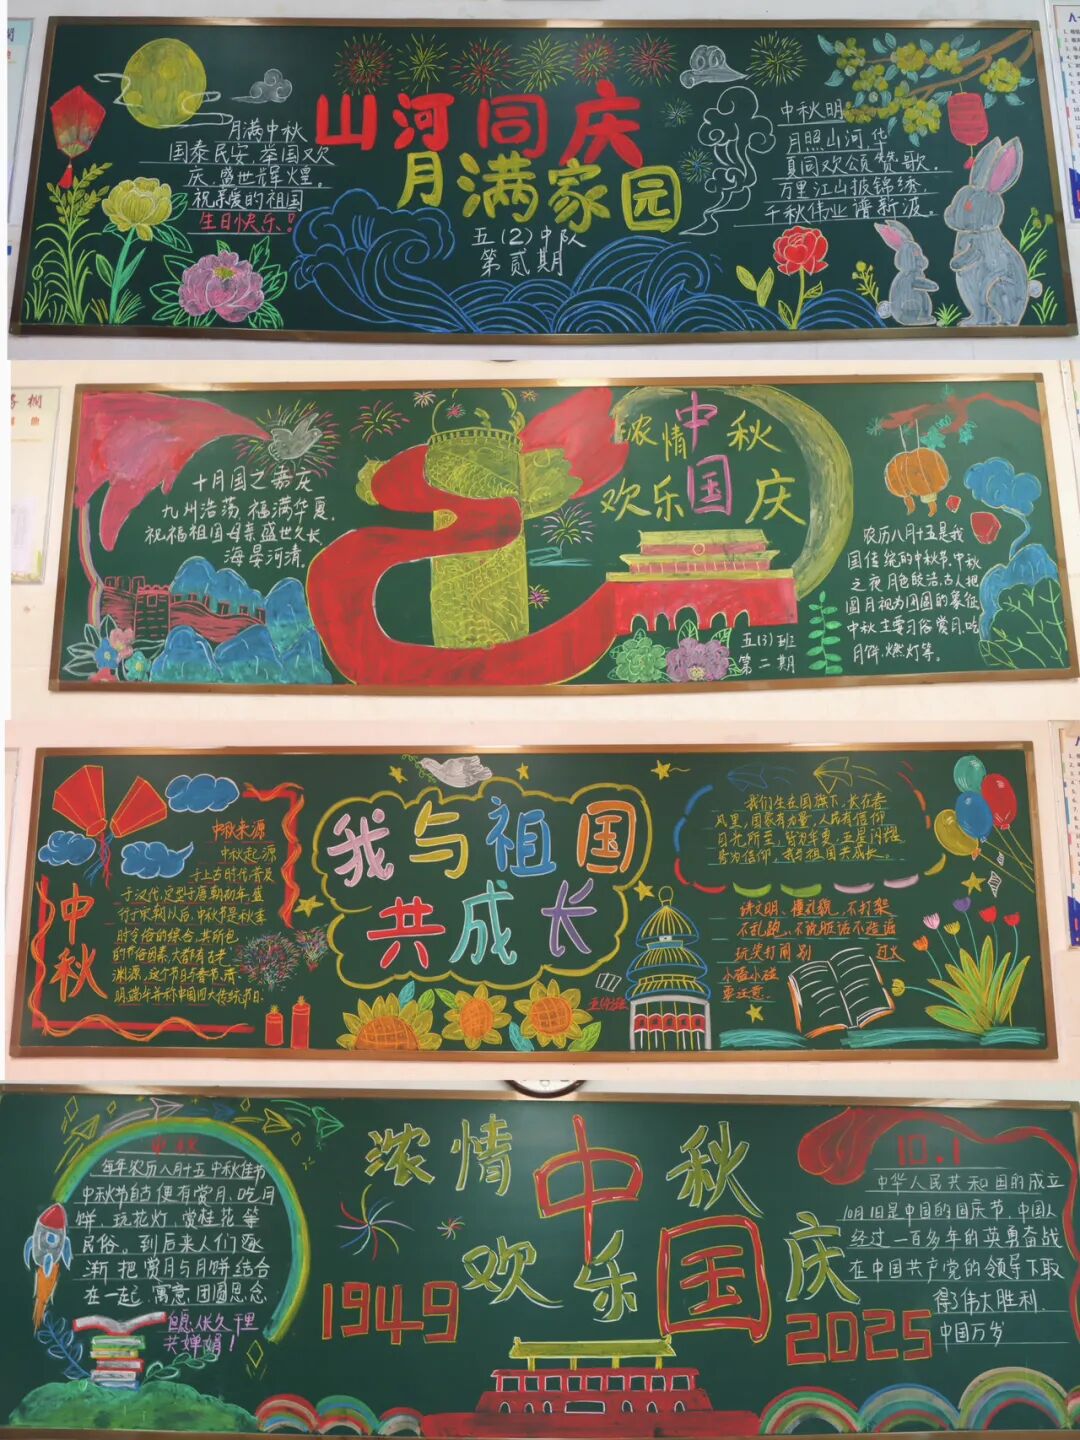 山河同庆
月满家园
五(2)中队
第贰期
月满中秋
国泰民安,举国又欢
庆,盛世辉煌。
祝亲爱的祖国
生日快乐!
中秋明
月照山河,华
夏同欢颂赞歌.
万里江山披锦绣,
千秋伟业谱新
十月国之嘉庆
九州浩荡,福满华夏,
祝福祖国母亲盛世久长,
海晏河清.
浓情中秋
欢乐国庆
五(3)班
第二期
农历八月十五是我
国传统的中秋节,中秋
之夜月色皎洁,古人把
圆月视为团圆的象征
中秋主要习俗赏月,吃
月饼,燃灯等。
中秋
中秋来源
中秋起源
于上古时代,普及
于汉代,定型于唐朝初年,盛
行于宋朝以后,中秋节是秋季
时令俗的综合,其所包
的节俗因素,大都有古老
渊源,这个节日与春节,清
明,端午并称中国四大传统节日.
我与祖国
共成长
我们生在国旗下,长在春
风里,国家有力量,人民有信仰
目光所至,皆为华夏,五星闪耀
皆为信仰,我与祖国共成长。
讲文明、懂礼貌,不打架
玩笑打闹别 过火
小磕小碰
要注意.
浓情中秋
欢乐国庆
1949
2025
中秋
每年农历八月十五中秋佳节
中秋节自古便有赏月、吃月
饼、玩花灯、赏桂花等
民俗。到后来人们逐
渐把赏月与月饼结合
在一起,寓意团圆思念
但愿人长久,千里
共婵娟!
10.1
中华人民共和国的成立
10月1日是中国的国庆节,中国人
经过一百多年的英勇奋战
在中国共产党的领导下取
得了伟大胜利.
中国万岁